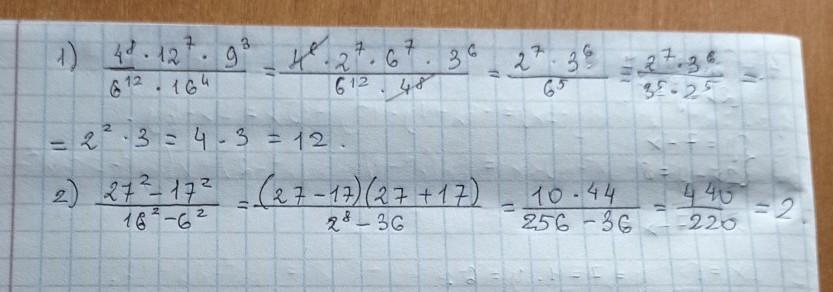 1) (4⁸ · 12⁷ · 9³)/(6¹² · 16⁴) = (4⁸ · 2⁷ · 6⁷ · 3⁶)/(6¹² · 4⁸) = (2⁷ · 3⁶)/(6⁵) = (2⁷ · 3⁶)/(3⁵ · 2⁵) =
= 2² · 3 = 4 · 3 = 12.
2) (27² - 17²)/(16² - 6²) = ((27 - 17)(27 + 17))/(2⁸ - 36) = (10 · 44)/(256 - 36) = 440/220 = 2.